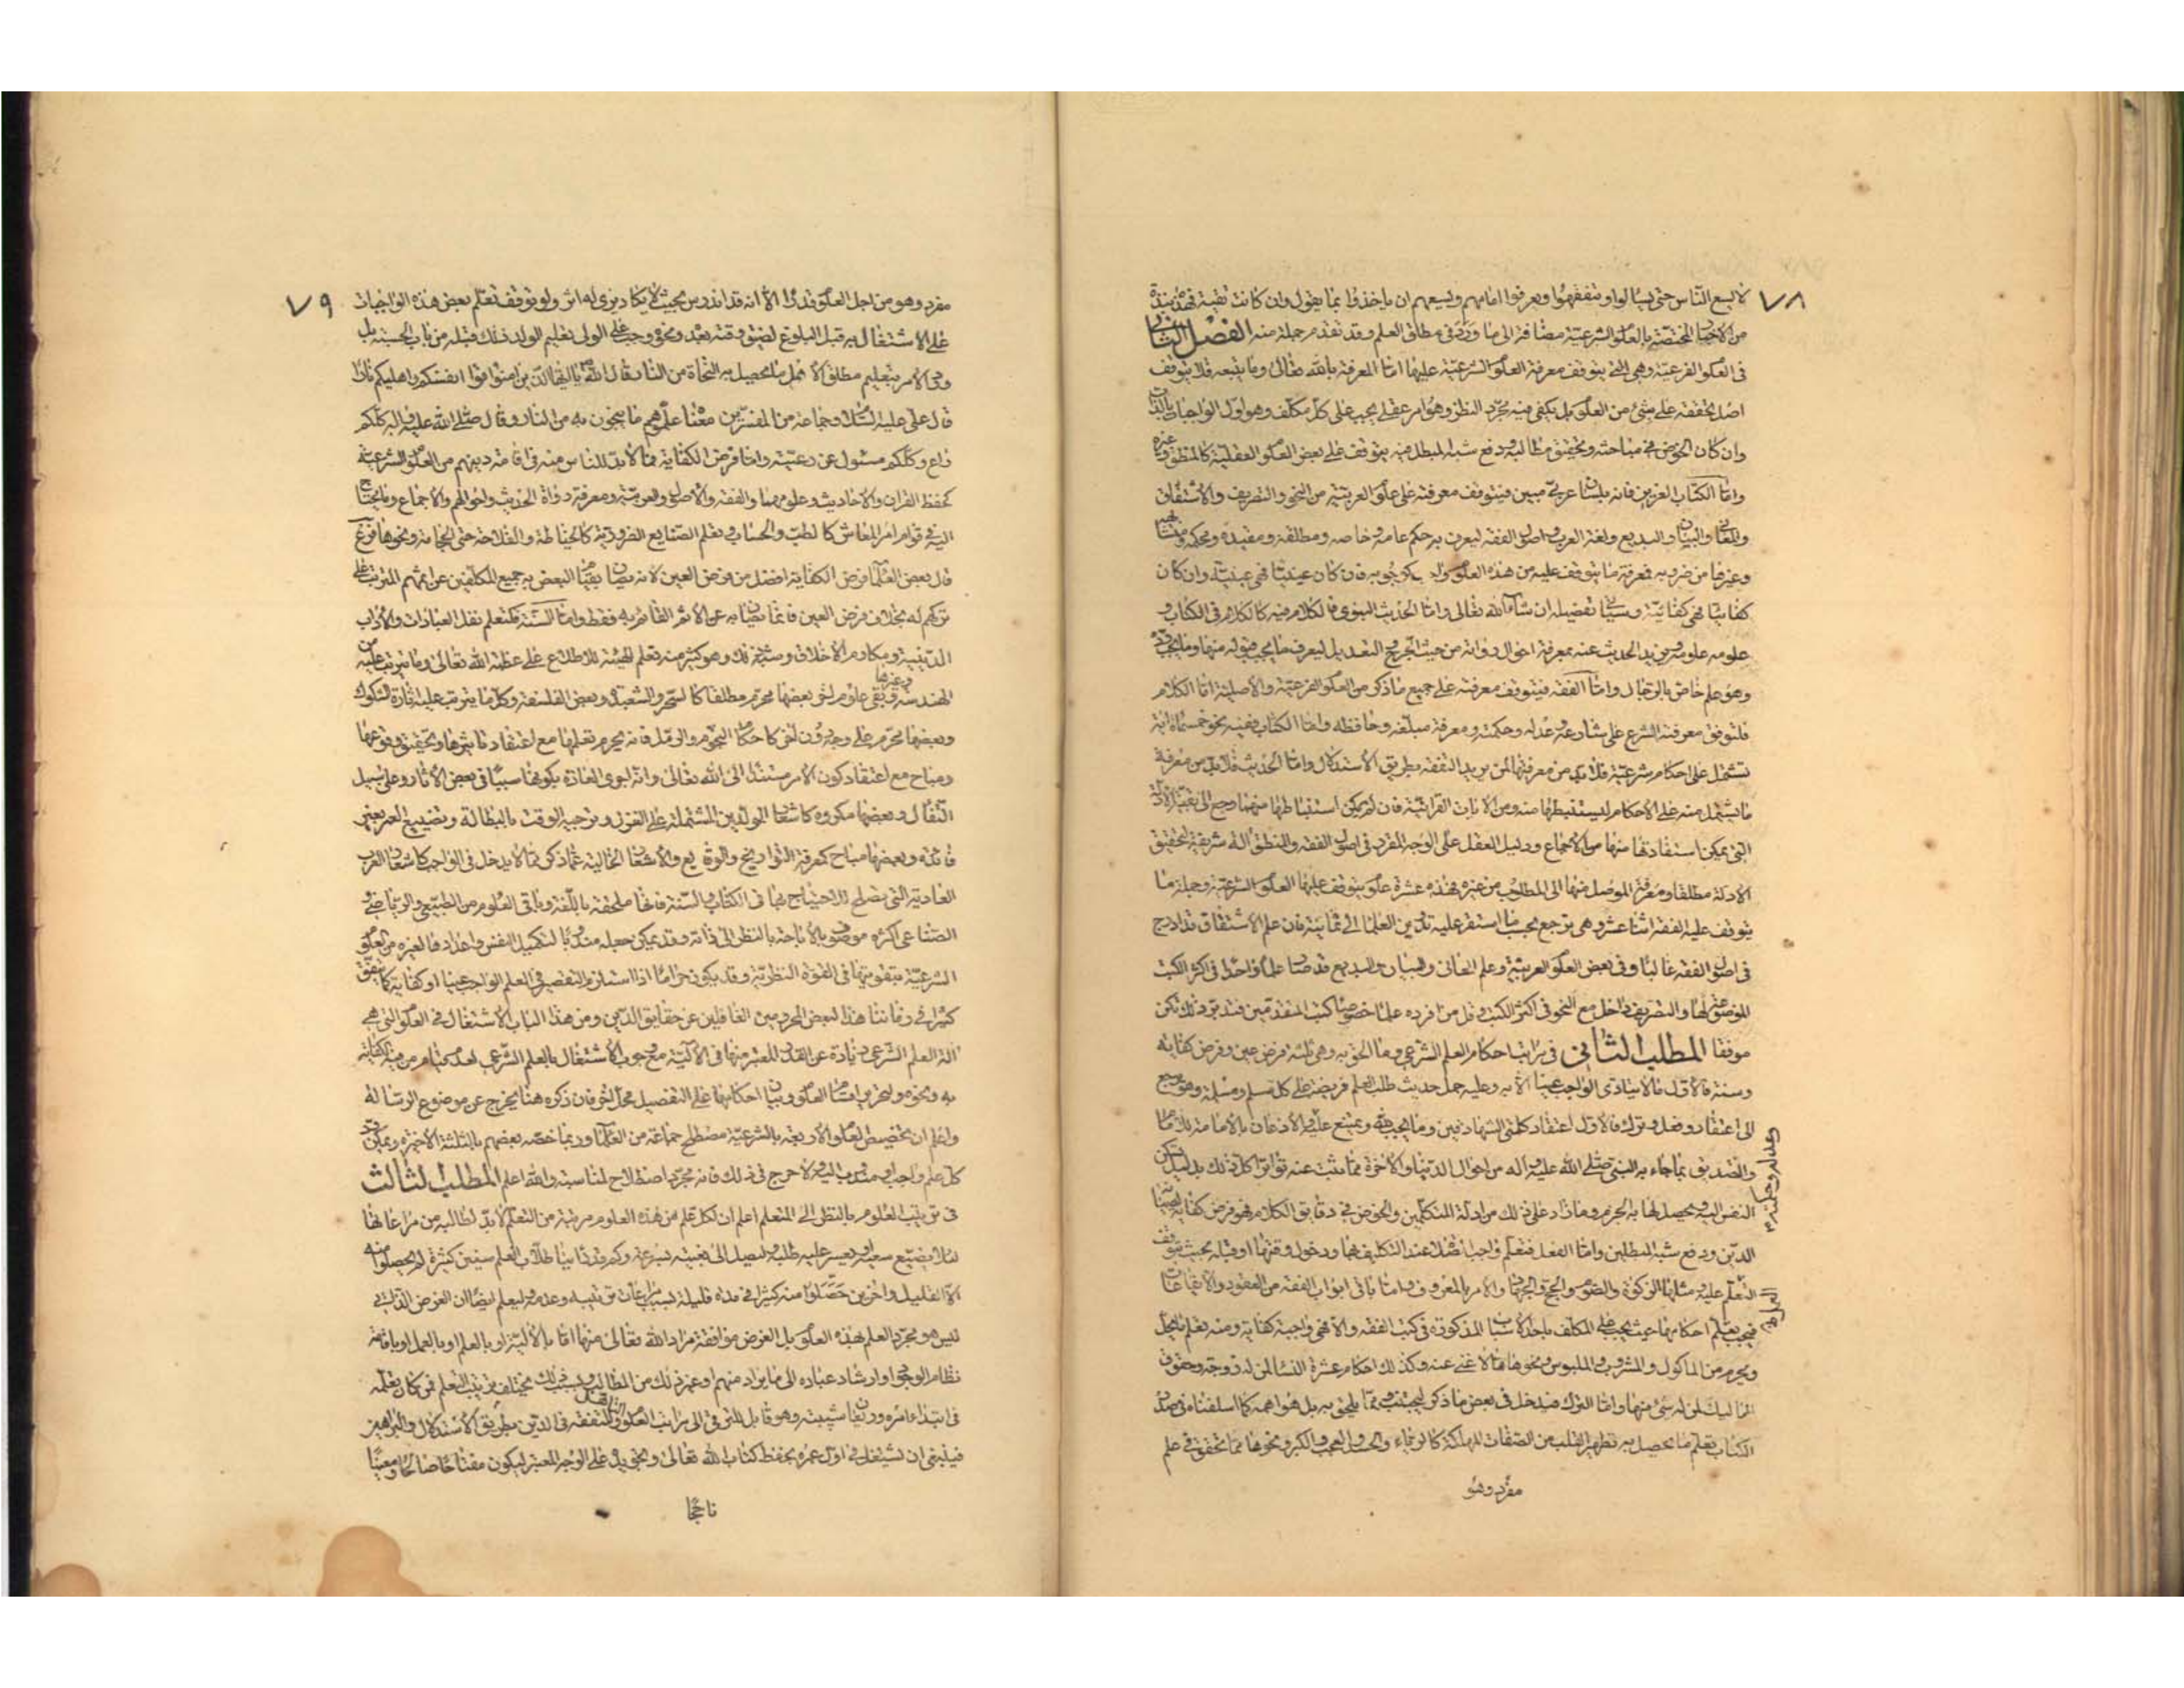 ٧٨
لا يسع الناس حتى يسالوا ويتفقهوا ويعرفوا امامهم ويسعهم ان ياخذوا بما يقول وان كانت تقية فهذه نبذة
من الاخبار المختصة بالعلوم الشرعية مضافة الى ما ورد في مطلق العلم وقد تقدم جملة منه الفصل الثاني
في العلوم الفرعية وهي التي يتوقف معرفة العلوم الشرعية عليها اما المعرفة بالله تعالى وما يتبعه فلا يتوقف
اصل تحققه على شئ من العلوم بل يكفي فيه مجرد النظر وهو امر عقلي يجب على كل مكلف وهو اول الواجبات بالذات
وان كان الخوض في مباحثه وتحقيق مطالبه ودفع شبه المبطل فيه يتوقف على بعض العلوم العقلية كالمنطق وغيره
واما الكتاب العزيز فانه بلسان عربي مبين فيتوقف معرفته على علوم العربية من النحو والتصريف والاشتقاق
والمعاني والبيان والبديع ولغة العرب واصول الفقه ليعرف به حكم عامه وخاصه ومطلقه ومقيده ومحكمه ومتشابهه
وغيرها من ضروبه فمعرفة ما يتوقف عليه من هذه العلوم واجب كوجوبه فان كان عينيا فهي عينية وان كان
كفائيا فهي كفائية وسياتي تفصيله ان شاء الله تعالى واما الحديث النبوي فالكلام فيه كالكلام في الكتاب و
علومه علومه ويزيد الحديث عنه بمعرفة احوال رواته من حيث الجرح والتعديل ليعرف ما يجب قبوله منها وما يجب رده
وهو علم خاص بالرجال واما الفقه فيتوقف معرفته على جميع ما ذكر من العلوم الفرعية والاصلية اما الكلام
فلتوقف معرفة الشرع على شارعه وعدله وحكمته ومعرفة مبلغه وحافظه واما الكتاب ففيه نحو خمسمائة اية
تشتمل على احكام شرعية فلا بد من معرفتها لمن يريد التفقه بطريق الاستدلال واما الحديث فلا بد من معرفة
ما يشتمل منه على الاحكام ليستنبطها منه ومن الايات القرانية فان لم يمكن استنباطها منهما رجع الى بقية الادلة
التي يمكن استفادتها منها من الاجماع ودليل العقل على الوجه المقرر في اصول الفقه والمنطق آلة شريفة لتحقيق
الادلة مطلقا ومعرفة الموصل منها الى المطلوب من غيره فهذه عشرة علوم يتوقف عليها العلوم الشرعية وجملة ما
يتوقف عليه الفقه اثنا عشر وهي ترجع بحسب ما استقر عليه تدوين العلماء الى ثمانية فان علم الاشتقاق قد ادرج
في اصول الفقه غالبا وفي بعض العلوم العربية وعلم المعاني والبيان والبديع قد صار علما واحدا في اكثر الكتب
الموضوعة لها والتصريف داخل مع النحو في اكثر الكتب وقل من افرده علما خصوصا كتب المتقدمين فتدبر ذلك تكن
موفقا المطلب الثاني في مراتب احكام العلم الشرعي وما الحق به وهي ثلثة فرض عين وفرض كفاية
وسنة فالاول ما لا يتادى الواجب عينا الا به وعليه حمل حديث طلب العلم فريضة على كل مسلم ومسلمة وهو يرجع
الى اعتقاد وفعل وترك فالاول اعتقاد كلمتي الشهادتين وما يجب لله ويمتنع عليه والاذعان بالامامة للامام
وعدله وحكمته
والتصديق بما جاء به النبي صلى الله عليه واله من احوال الدنيا والاخرة مما ثبت عنه تواترا كل ذلك بدليل تسكن
النفس اليه ويحصل لها به الجزم وما زاد على ذلك من ادلة المتكلمين والخوض في دقايق الكلام فهو فرض كفاية لصيانة
الدين ودفع شبه المبطلين واما الفعل فتعلم واجب الصلاة عند التكليف بها ودخول وقتها او قبله بحيث يتوقف
التعلم عليه ومثلها الزكوة والصوم والحج والجهاد والامر بالمعروف واما باقي ابواب الفقه من العقود والايقاعات
فيجب تعلم احكامها حيث يجب على المكلف باحد الاسباب المذكورة في كتب الفقه والا فهي واجبة كفاية ومنه تعلم ما يحل
ويحرم من الماكول والمشروب والملبوس ونحوها مما لا غنى عنه وكذلك احكام عشرة النساء لمن له زوجة وحقوق
المماليك لمن له شئ منها واما الترك فيدخل في بعض ما ذكر ليجتنب ومما يلحق به بل هو اهمه كما اسلفناه في صدر
الكتاب تعلم ما يحصل به تطهير القلب من الصفات المهلكة كالرياء والحسد والعجب والكبر ونحوها مما تحقق في علم
مفرد وهو
٧٩
مفرد وهو من اجل العلوم قدرا الا انه قد اندرس بحيث لا يكاد يرى له اثر ولو توقف تعلم بعض هذه الواجبات
على الاشتغال به قبل البلوغ لضيق وقته بعده ونحوه وجب على الولي تعليم الولد ذلك قبله من باب الحسبة بل
ورد الامر بتعليم مطلق الاهل ما يحصل به النجاة من النار قال الله تعالى يا ايها الذين امنوا قوا انفسكم واهليكم نارا
قال علي عليه السلام وجماعة من المفسرين معناه علموهم ما ينجون به من النار وقال صلى الله عليه واله كلكم
راع وكلكم مسئول عن رعيته واما فرض الكفاية فما لا بد للناس منه في اقامة دينهم من العلوم الشرعية
كحفظ القران والاحاديث وعلومهما والفقه والاصول والعربية ومعرفة رواة الحديث واحوالهم والاجماع وما يحتاج
اليه في قوام امر المعاش كالطب والحساب وتعلم الصنايع الضرورية كالخياطة والفلاحة حتى الحجامة ونحوها فرع
قال بعض العلماء فرض الكفاية افضل من فرض العين لانه يصان بقيام البعض به جميع المكلفين عن اثمهم المترتب على
تركهم له بخلاف فرض العين فانما يصان به عن الاثم القائم به فقط واما السنة فكتعلم نفل العبادات والاداب
الدينية ومكارم الاخلاق وشبه ذلك وهو كثير منه تعلم الهيئة للاطلاع على عظمة الله تعالى وما يترتب عليه من
الهندسة وغيرها وبقي علوم اخر بعضها محرم مطلقا كالسحر والشعبذة وبعض الفلسفة وكل ما يترتب عليه اثارة الشكوك
وبعضها محرم على وجه دون اخر كاحكام النجوم والرمل فانه يحرم تعلمها مع اعتقاد تاثيرها وتحقيق وقوعها
ومباح مع اعتقاد كون الامر مستندا الى الله تعالى وانه اجرى العادة بكونها سببا في بعض الاثار وعلى سبيل
التفأل وبعضها مكروه كاشعار المولدين المشتملة على الغزل وتزجية الوقت بالبطالة وتضييع العمر بغير
فائدة وبعضها مباح كمعرفة التواريخ والوقايع والاشعار الخالية عما ذكر مما لا يدخل في الواجب كاشعار العرب
العاربة التي تصلح للاحتجاج بها في الكتاب والسنة فانها ملحقة باللغة وباقي العلوم من الطبيعي والرياضي و
الصناعي اكثره موصوف بالاباحة بالنظر الى ذاته وقد يمكن جعله مندوبا لتكميل النفس واعدادها لغيره من العلوم
الشرعية بتقويتها في القوة النظرية وقد يكون حراما اذا استلزم التقصير في العلم الواجب عينا او كفاية كما يتفق
كثيرا في زماننا هذا لبعض المحرومين الغافلين عن حقايق الدين ومن هذا الباب الاشتغال في العلوم التي هي
الة العلم الشرعي زيادة عن القدر المعتبر منها في الآلية مع وجوب الاشتغال بالعلم الشرعي لعدم قيام من فيه الكفاية
به ونحوه ولتحرير اقسام العلوم وبيان احكامها على التفصيل محل اخر فان ذكره هنا يخرج عن موضوع الرسالة
واعلم ان تخصيص العلوم الاربعة بالشرعية مصطلح جماعة من العلماء وربما خصه بعضهم بالثلثة الاخيرة ويمكن رد
كل علم واجب او مندوب اليه ولا حرج في ذلك فانه مجرد اصطلاح لمناسبة والله اعلم المطلب الثالث
في ترتيب العلوم بالنظر الى المتعلم اعلم ان لكل علم من هذه العلوم مرتبة من التعلم لا بد لطالبه من مراعاتها
لئلا يضيع سعيه او يعسر عليه طلبه وليصل الى بغيته بسرعة وكم قد راينا طلاب العلم سنين كثيرة لم يحصلوا منه
الا القليل واخرين حصلوا منه كثيرا في مدة قليلة بسبب مراعاة ترتيبه وعدمه وليعلم ايضا ان الغرض الذاتي
ليس هو مجرد العلم بهذه العلوم بل الغرض موافقة مراد الله تعالى منها اما بالآلية او بالعلم او بالعمل او باقامة
نظام الوجود او ارشاد عباده الى ما يراد منهم او غير ذلك من المطالب وبسبب ذلك يختلف ترتيب التعلم فمن كان تعلمه
في ابتداء امره وريعان شبيبته وهو قابل للترقي الى مراتب العلوم والتفقه في الدين بطريق الاستدلال والبراهين
فينبغي ان يشتغل في اول عمره بحفظ كتاب الله تعالى وتجويده على الوجه المعتبر ليكون مفتاحا صالحا ومعينا
ناجحا